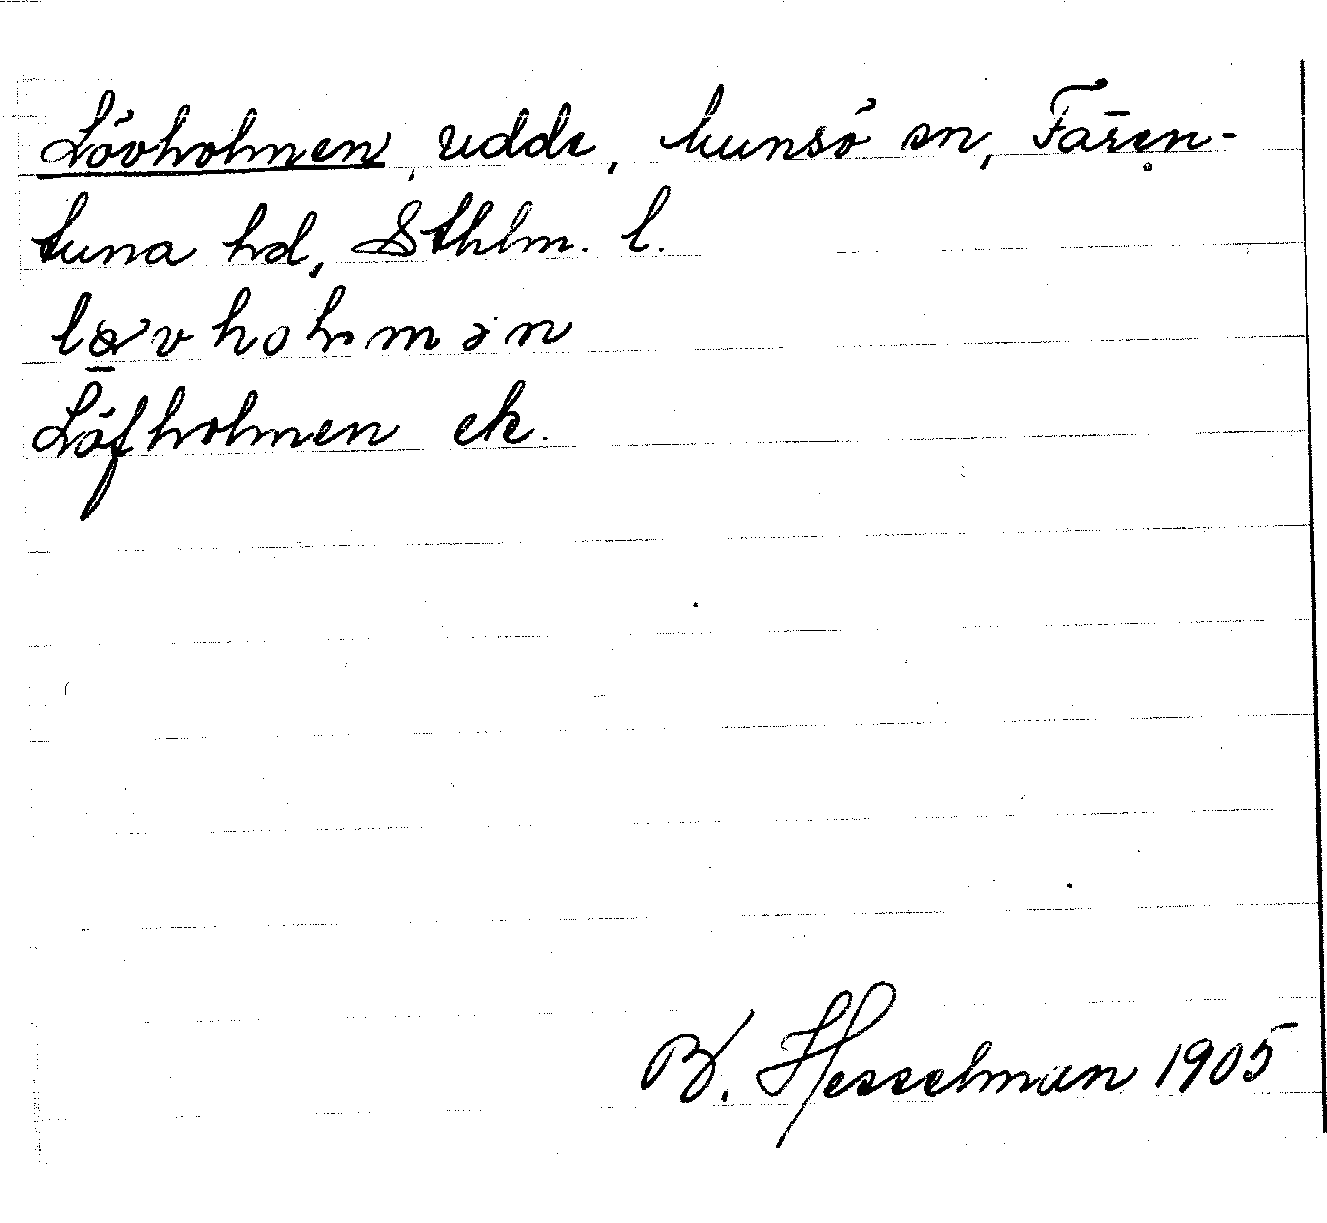 Lövholmen, udde, Munsö sn, Fären-
tuna hd, Sthlm. l.
Löfholmen ek.
B. Hesselman 1905